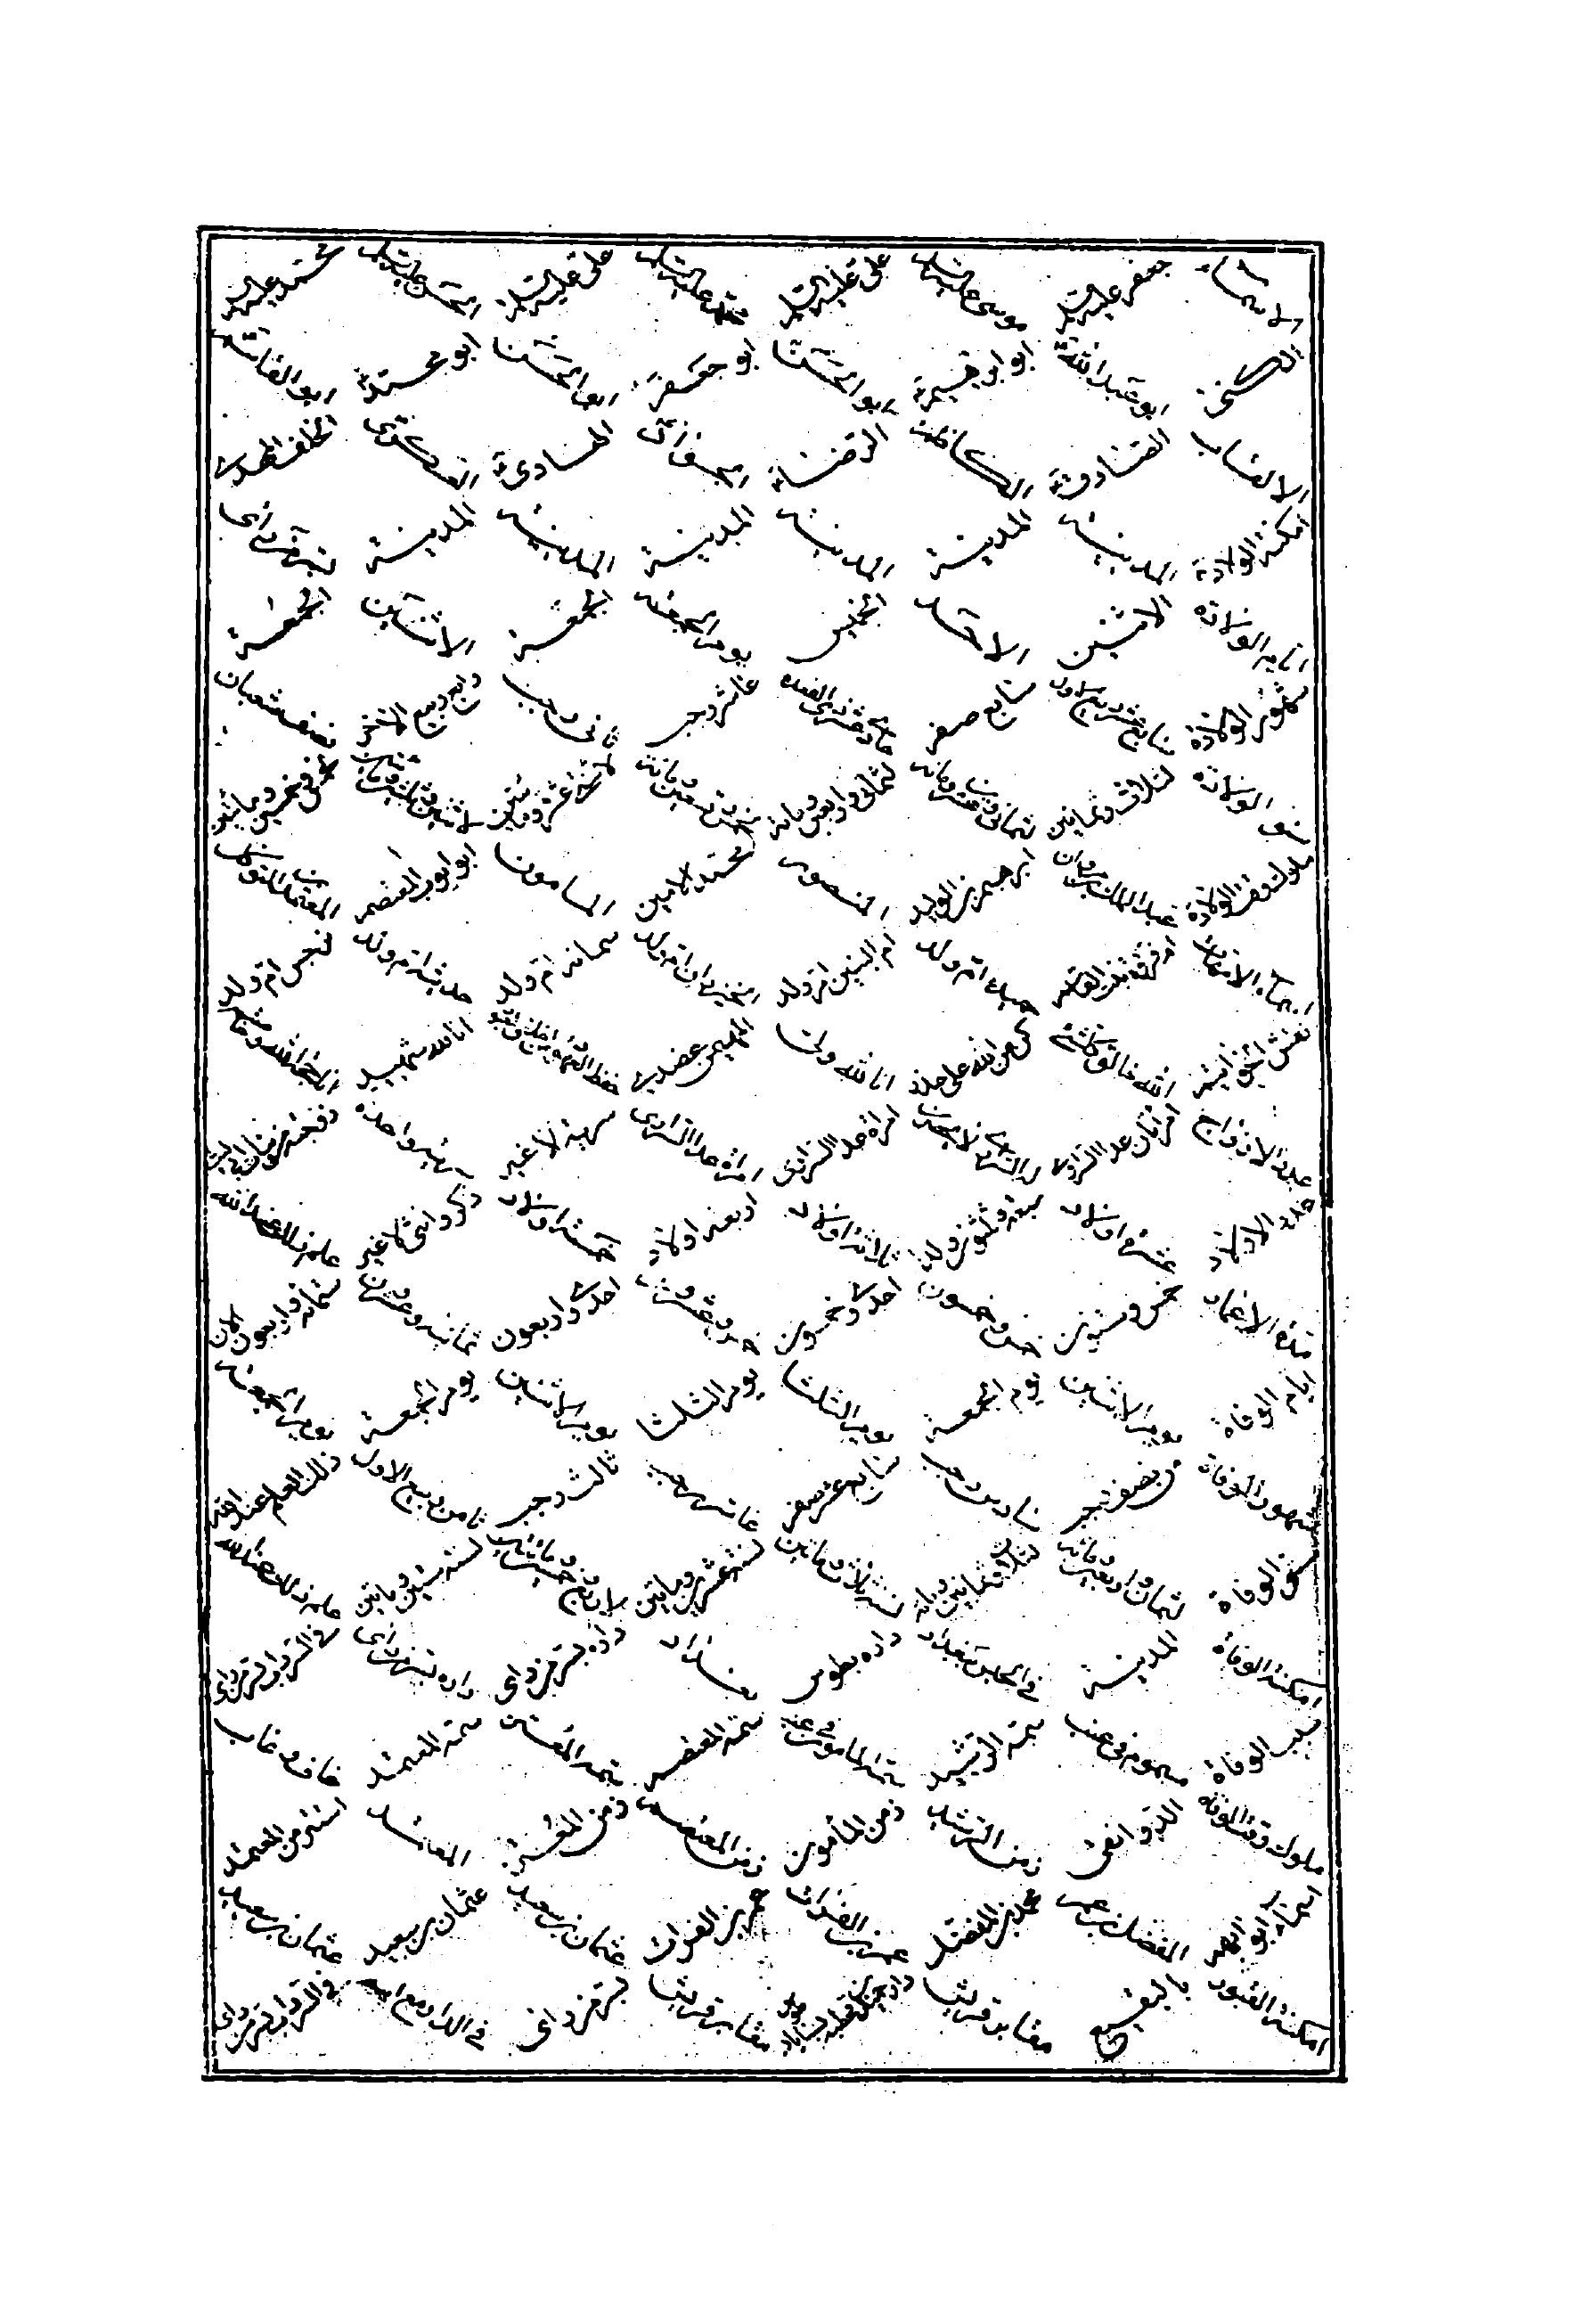 الاسماء جعفر عليه السلام موسى عليه السلام على عليه السلام محمد عليه السلام على عليه السلام الحسن عليه السلام محمد عليه السلام
الكنى ابو عبدالله ابو ابرهيم ابو الحسن ابو جعفر ابو الحسن ابو محمد ابو القاسم
الالقاب الصادق الكاظم الرضا الجواد الهادى العسكرى الخلف المهدى
امكنة الولادة المدينة المدينة المدينة المدينة المدينة المدينة بسر من راى
ايام الولادة الاثنين الاحد الخميس يوم الجمعة الجمعة الاثنين الجمعة
شهور الولادة سابع عشر ربيع الاول سابع صفر حادى عشر ذى القعده عاشر رجب ثانى رجب رابع ربيع الاخر نصف شعبان
سنو الولادة لثلاث وثمانين ثمان وعشرين ومائه لثمان واربعين ومائة خمس وتسعين ومائة
ملوك وقت الولادة عبد الملك بن مروان ابرهيم بن الوليد المنصور محمد الامين المامون المعتمد بن المتوكل
اسماء الامهات ام فروة بنت القاسم حميده ام ولد ام البنين ام ولد خيزران ام ولد سمانه ام ولد حديثه ام ولد نرجس ام ولد
نقش الخواتيم الله خالق كل شئ كن من الله على حذر انا لله ولى المهيمن عضدى انا لله شهيد
عدة الازواج امرأتان عدا السرارى امراة عدا السرارى امراة عدا السرارى سرية لا غير سريه واحده
عدد الاولاد عشرة اولاد سبعة وثلثون ولدا ثلاثة اولاد اربعة اولاد خمسة اولاد ذكر وانثى لا غير علم ذلك عند الله
مدة الاعمار خمس وستون خمس وخمسون احدى وخمسون خمس وعشرون احدى واربعون ثمانيه وعشرون
ايام الوفاة يوم الاثنين يوم الجمعة يوم الثلثا يوم الثلثا يوم الاثنين يوم الجمعة يوم الجمعة
شهور الوفاة نصف رجب سادس رجب سابع عشر صفر عاشر رجب ثالث رجب ثامن ربيع الاول ذلك العلم عند الله
سنى الوفاة لثمان واربعين ومائه لثلاث وثمانين ومائه لسنة ثلاث ومائتين لسنة عشرين ومائتين لاربع وخمسين ومائتين لسنة ستين ومائتين علم ذلك عند الله
امكنة الوفاة المدينة فى الحبس ببغداد داره بطوس بغداد داره بسر من راى داره بسر من راى فى السرداب بسر من راى
سبب الوفاة مسموم فى عنب سمه الرشيد سمه المامون فى عنب سمه المعتصم سمه المعتز سمه المعتمد خاف فغاب
ملوك وقت الوفاة الدوانقى زمن الرشيد زمن المأمون زمن المعتصم زمن المعتز المعتمد استتر من المعتمد
اسماء ابوابهم المفضل بن عمر محمد بن المفضل عمر بن الفرات عمر بن الفرات عثمان بن سعيد عثمان بن سعيد عثمان بن سعيد
امكنة القبور بالبقيع مقابر قريش مقابر قريش بسر من راى فى الدار مع ابيه فى السرداب بسر من راى